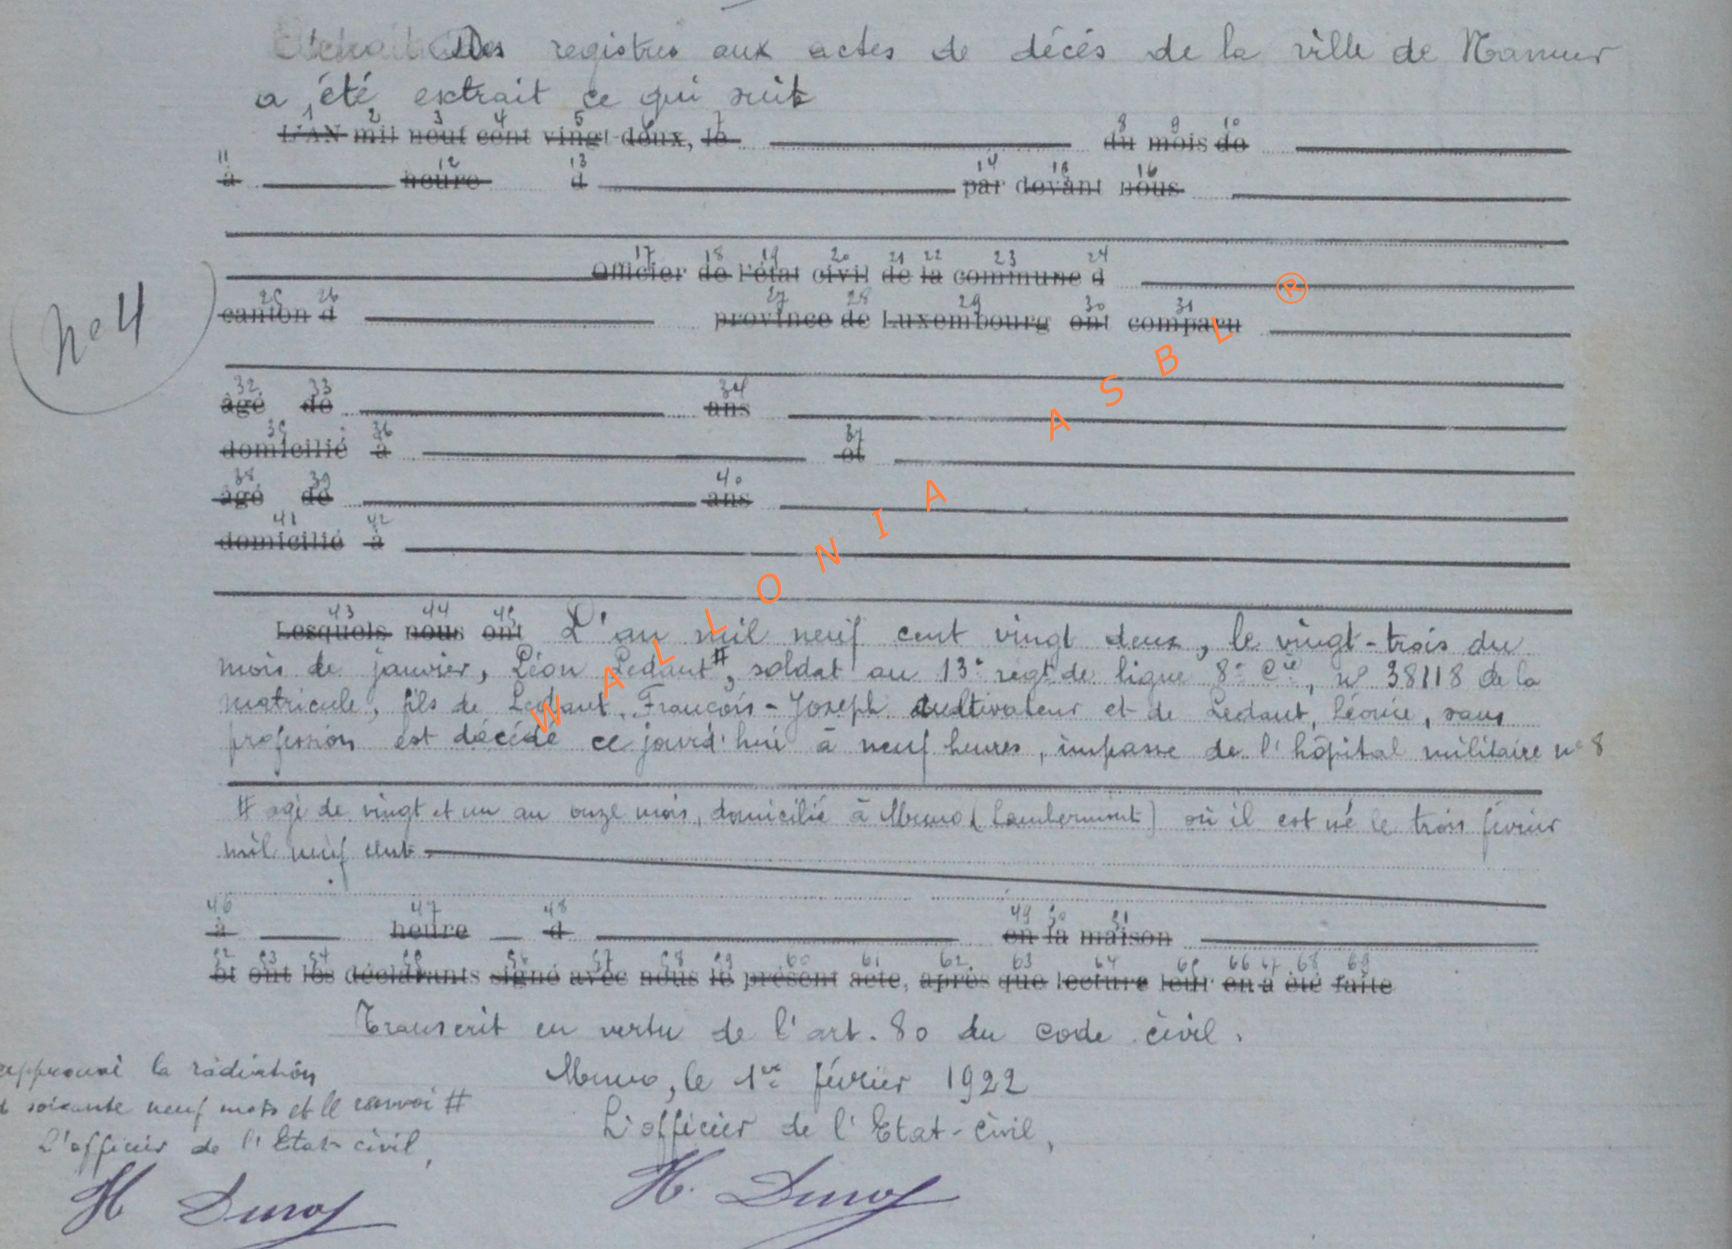 Des registres aux actes de décés de la ville de Namur
a été extrait ce qui suit
1 2 3 4 5 6 7 8 9 10
L'AN mil neuf cent vingt-deux, le du mois de
11 12 13 14 15 16
à heure d par devant nous
17 18 19 20 21 22 23 24
Officier de l'état civil de la commune d
25 26 27 28 29 30 31
canton d province de Luxembourg ont comparu
No 4
32 33 34
âgé de ans
35 36 37
domicilié à et
38 39 40
âgé de ans
41 42
domicilié à
43 44 45
Lesquels nous ont L'an mil neuf cent vingt deux, le vingt-trois du
mois de janvier, Léon Ledant #, soldat au 13e régt de ligne 8e Cie, no 38118 de la
matricule, fils de Ledant, François-Joseph cultivateur et de Ledant, Léonie, sans
profession est décédé ce jourd'hui à neuf heures, impasse de l'hôpital militaire no 8
# agé de vingt et un an onze mois, domicilié à Muno (Lambermont) où il est né le trois février
mil neuf cent
46 47 48 49 50 51
à heure d en la maison
52 53 54 55 56 57 58 59 60 61 62 63 64 65 66 67 68 69
et ont les déclarants signé avec nous le présent acte, après que lecture leur en a été faite
Transcrit en vertu de l'art. 80 du code civil.
Muno, le 1er février 1922
L'officier de l'Etat-civil,
approuvé la radiation
soixante neuf mots et le renvoi #
L'officier de l'Etat-civil,
WALLONIA ASBL ®